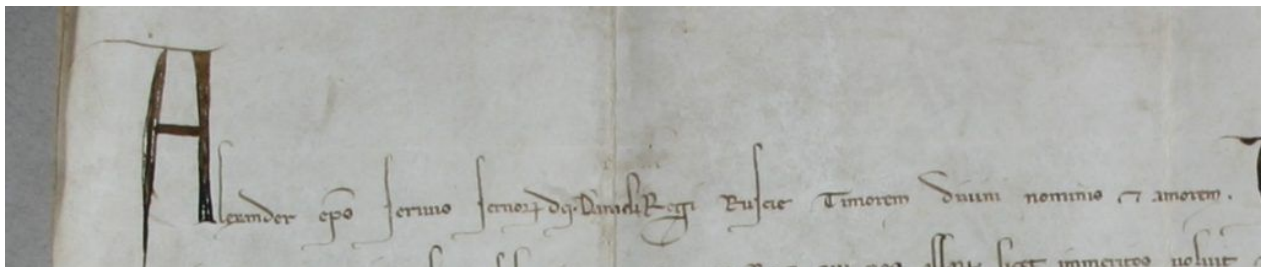 Alexander ep̄s servus servorꝝ dei. Danieli Regi Ruscie Timorem divini nominis et amorem.
licet immeritos voluit